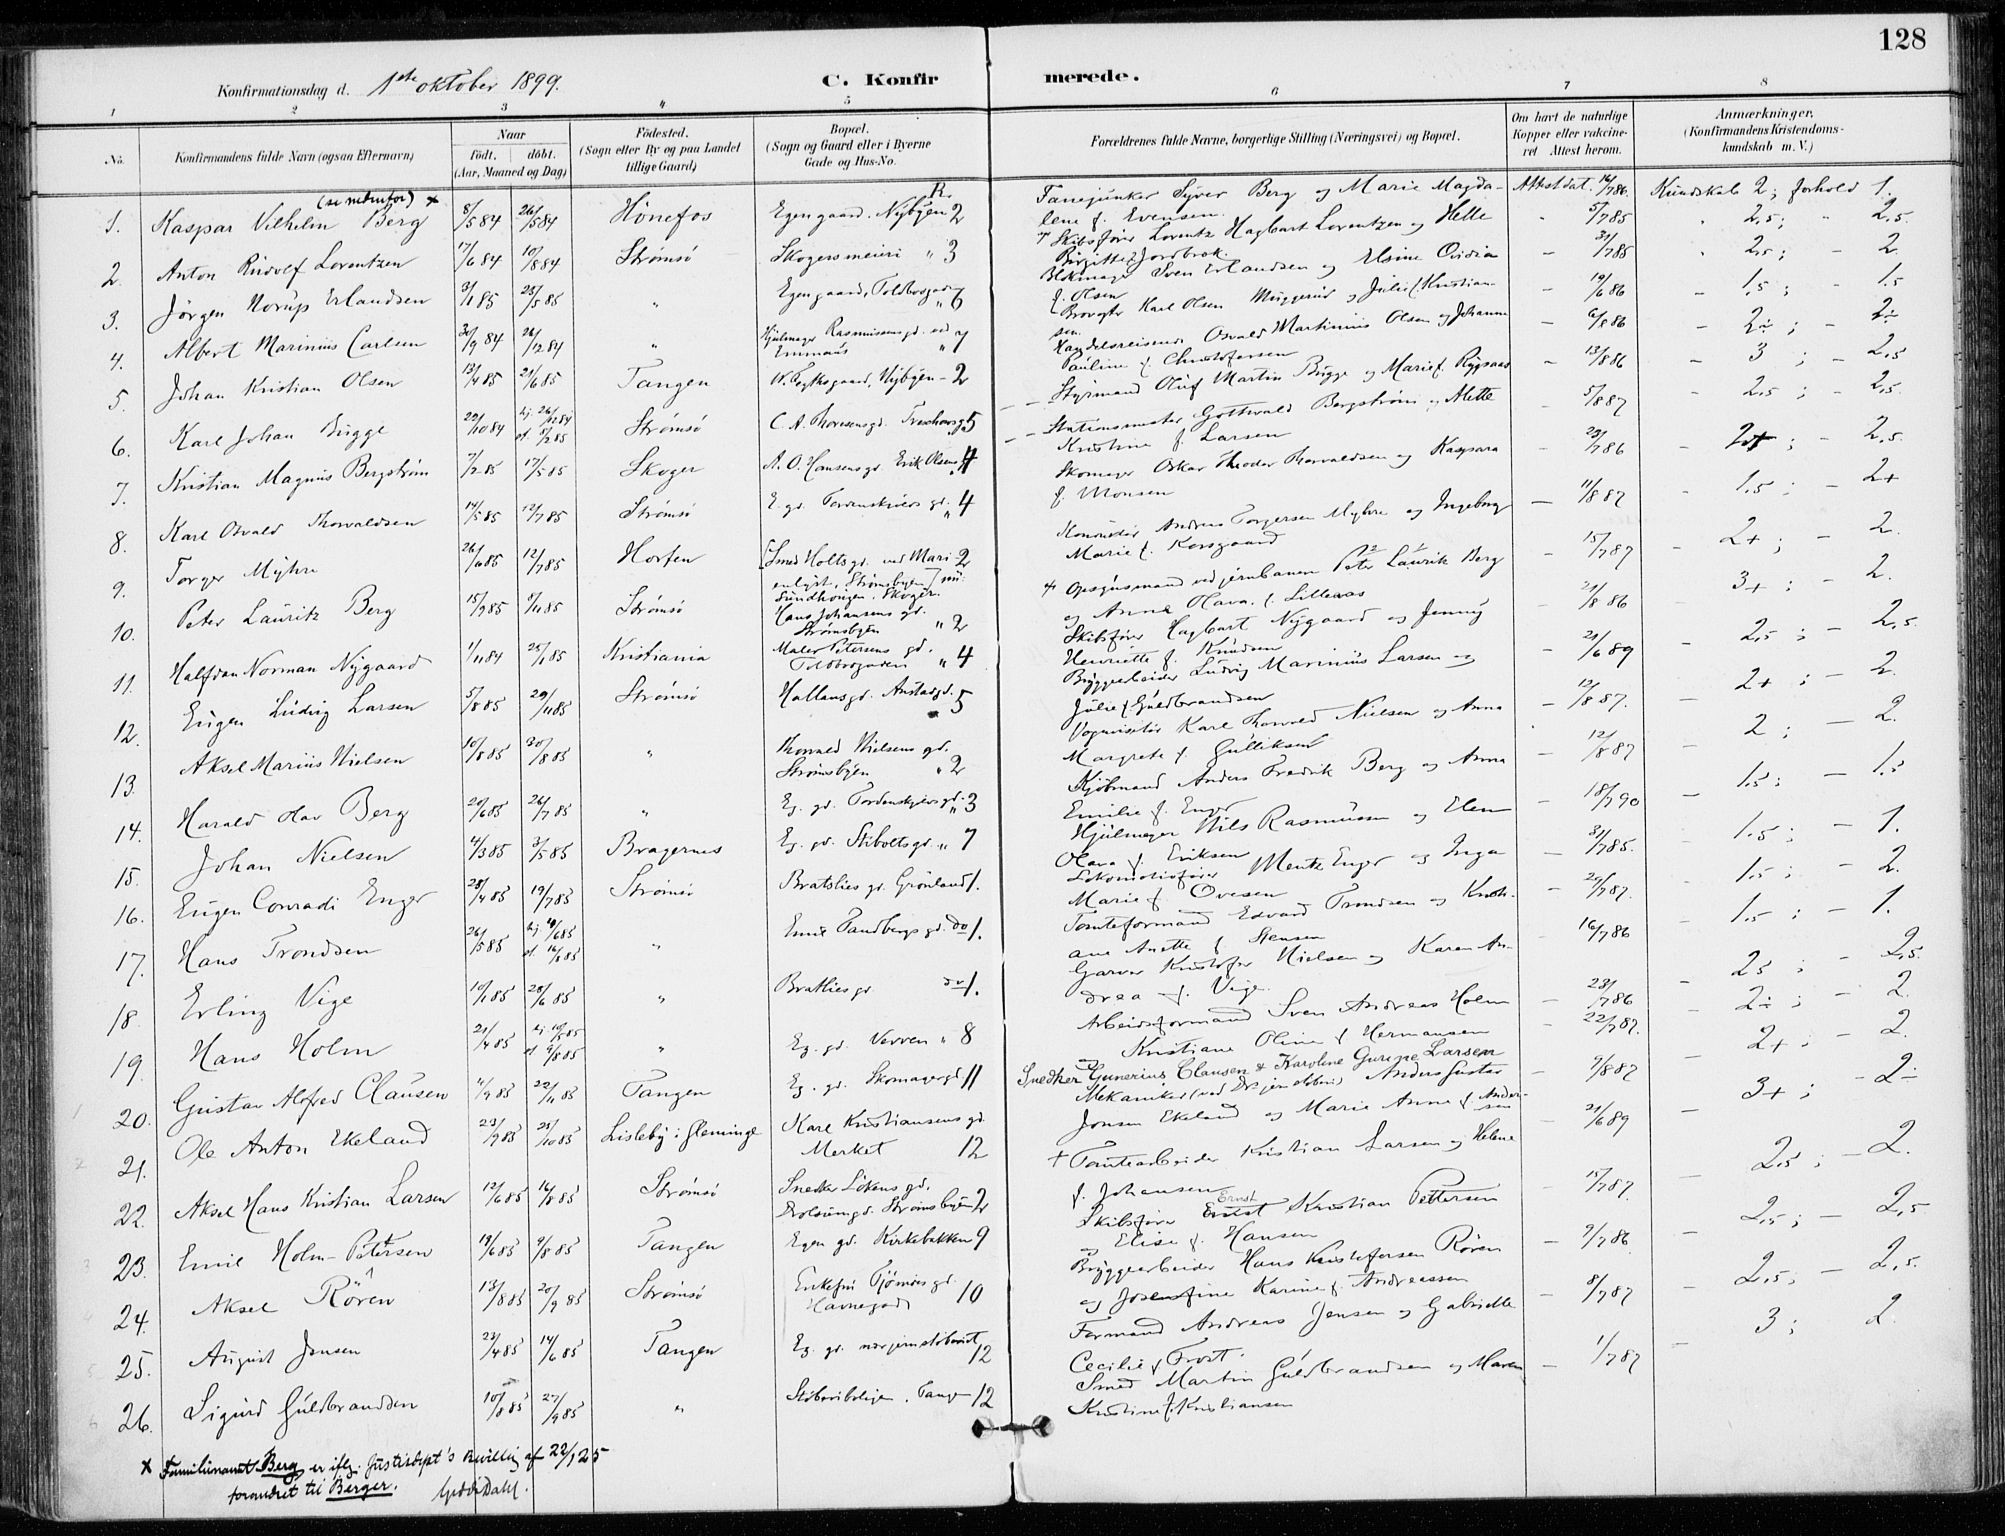 128
Konfirmationsdag d. 1ste oktober 1899.
C. Konfirmerede.
1 2 3 4 5 6 7 8
No.
Konfirmandens fulde Navn (ogsaa Efternavn)
Naar
født. døbt.
(Aar, Maaned og Dag)
Födested.
(Sogn eller By og paa Landet
tillige Gaard)
Bopæl.
(Sogn og Gaard eller i Byerne
Gade og Hus-No.
Forældrenes fulde Navne, borgerlige Stilling (Næringsvei) og Bopæl.
Om havt de naturlige
Kopper eller vakcine-
ret Attest herom.
Anmærkninger.
(Konfirmandens Kristendoms-
kundskab m. V.)
(se nedenfor) x
1. Kaspar Vilhelm Berg 8/5 84 26/5 84 Hönefos Egen gaard. Nybyen R. 2 Fanejunker Syver Berg og Marie Magda-
lene f. Evensen. Attest dat. 16/7 86. Kundskab 2; forhold 1.
2. Anton Rudolf Lorentzen 17/6 84 10/8 84 Strömsö Skogersmeieri " 3 + Skibsfører Lorentz Hagbart Lorentzen og Helle
Birgitte f. Jordbræk. 5/7 85 2,5; 2,5.
3. Jörgen Norup Erlandsen 3/1 85 25/5 85 " Egen gaard, Toldbogaden " 6 Blokmager Sven Erlandsen og Elsine Ovidia
f. Olsen 31/7 85 2,5; - 2
4. Albert Marinius Carlsen 30/9 84 26/12 84 " Hjulmager Rasmussens gd. ved
Emmaus " 7 Brovagter Karl Olsen Muggerud og Julie f. Kristian-
sen. - 19/6 86 - 1,5; - 1.5
5. Johan Kristian Olsen 13/4 85 21/6 85 Tangen W. Fogths gaard, Nybyen - 2 Handelsreisende Osvald Martinius Olsen og Johanne
Pauline f. Christofersen - 6/8 86 - 2÷; - 2÷
6. Karl Johan Bugge 29/10 84 hj. 26/12 84
st. 8/2 85 Strömsö C. A. Thoresens gd. Treschows g. 5 Styrmand Oluf Martin Bugge og Marie f. Rypsaas - 13/8 86 - 3; - 2,5
7. Kristian Magnus Bergström 7/2 85 17/5 85 Skoger A. O. Hansens gd. Erik Olsens g. 4 Stationsmester Gotthvald Bergström og Mette
Kristine f. Larsen - 5/8 87 2,5; - 2,5.
8. Karl Osvald Thorvaldsen 14/5 85 12/7 85 Strömsö E. gd. Tordenskjolds gd. " 4 Skomager Oskar Theodor Thorvaldsen og Kaspara
f. Monsen - 29/7 86 - 2+; - 2,5.
9. Torger Myhre 26/6 85 12/7 85 Horten Smed Holts gd. ved Mari- 2
enlyst, Strömsbyen nu:
Sundhougen. Skoger. Kanoner Andreas Torgersen Myhre og Ingeborg
Marie f. Korsgaard - 11/8 87 - 1,5; - 2+
10. Peter Lauritz Berg 15/7 85 9/11 85 Strömsö Hans Johansens gd.
Strömsbyen " 2 + Opsynsmand ved jernbanen Peter Lauritz Berg
og Anna Olava f. Lilleaas - 15/7 87 - 2+; - 2.
11. Halfdan Norman Nygaard 1/11 84 25/1 85 Kristiania Maler Petersens gd.
Toldbogaden " 4 Skibsfører Hagbart Nygaard og Jenny
Henriette f. Knudsen - 21/8 86 3+; - 2.
12. Eugen Ludvig Larsen 5/8 85 29/11 85 Strömsö Hallans gd. Anstad gd. 5 Bryggearbeider Ludvig Marinius Larsen og
Julie f. Guldbrandsen - 21/6 89 2,5; - 2,5.
13. Aksel Marius Nielsen 10/8 85 30/8 85 " Thorvald Nielsens gd.
Strömsbyen " 2 Vognvisitör Karl Thorvald Nielsen og Anna
Margrete f. Gulliksen - 12/8 87. - 2+; - 2.
14. Harald Olav Berg 20/6 85 26/7 85 " Eg. gd. Tordenskjolds gd. " 3 Kjöbmand Anders Fredrik Berg og Anna
Emilie f. Enger 12/8 87 2; - 2.
15. Johan Nielsen 4/3 85 3/5 85 Bragernes Eg. gd. Stibolts gd. " 7 Hjulmager Nils Rasmussen og Elen
Olava f. Eriksen - 18/7 90 - 1,5; - 1.5
16. Eugen Conradi Enger 28/4 85 19/7 85 Strömsö Bratslies gd. Grönland 1. Lokomotivfører Mentz Enger og Inga
Marie f. Ovesen - 31/7 85. 1.5; - 1.
17. Hans Trondsen 26/5 85 " Emil Tandbergs gd. do 1. Tomteformand Edvard Trondsen og Kristi-
ane Anette f. Stensen - 25/7 87. 1.5; - 2.
18. Erling Vige 10/1 85 28/6 85 " Bratlies gd. do 1. Garver Kristofer Nielsen og Karen An-
drea f. Vige. 16/7 86 1.5; - 1.
19. Hans Holm 21/4 85 " Eg. gd. Verven " 8 Arbeidsformand Sven Andreas Holm
og Kristiane Oline f. Hermansen - 23/7 86 - 2,5; - 2,5.
20. Gustav Alfred Clausen 11/9 85 22/11 85 Tangen Eg. gd. Skomagergd. 11 Snedker Gunerius Clausen & Karoline Gurine Larsen - 22/7 87. 2÷; - 2.
21. Ole Anton Ekeland 23/9 85 25/10 85 Lisleby i Glemminge Karl Kristiansens gd.
Merket 12 Mekaniker (ved Dr. jernstöberi) Anders Gustav
Jonsen Ekeland og Marie Anne f. Ander-
sen - 9/8 87 - 2+; - 2.
22. Aksel Hans Kristian Larsen 12/6 85 16/8 85 Strömsö Snedker Lökens gd.
Strömsbyen 2 + Tomtearbeider Kristian Larsen og Helene
f. Johansen 21/6 89 - 3+; - 2÷
23. Emil Holm-Pettersen 19/6 85 9/8 85 Tangen Egen gd. Kirkebakken 9 Skibsfører Ernst Kristian Pettersen
og Elise f. Hansen - 15/7 87. 2,5; - 2.
24. Aksel Rören 13/8 85 20/9 85 Strömsö Enkefru Tjömöes gd.
Havnegad. 10 Bryggearbeider Hans Kristofersen Rören
og Josefine Karine f. Andreassen - 7/7 86 2,5; - 2,5
25. August Jensen 23/4 85 14/6 85 Tangen Eg. gd. nær jernstöberiet 12 Formand Andreas Jensen og Gabrielle
Cecilie f. Frost. - 8/7 87 - 2,5; - 2,5.
26. Sigurd Guldbrandsen 10/8 85 27/9 85 " Stöberiboligen. Tangen 12 Smed Martin Guldbrandsen og Maren
Kristine f. Kristiansen - 1/7 87 - 3; 2.
x Familienavnet Berg er iflg. Justisdept's Bevilling af 22/1 25
forandret til Berger.